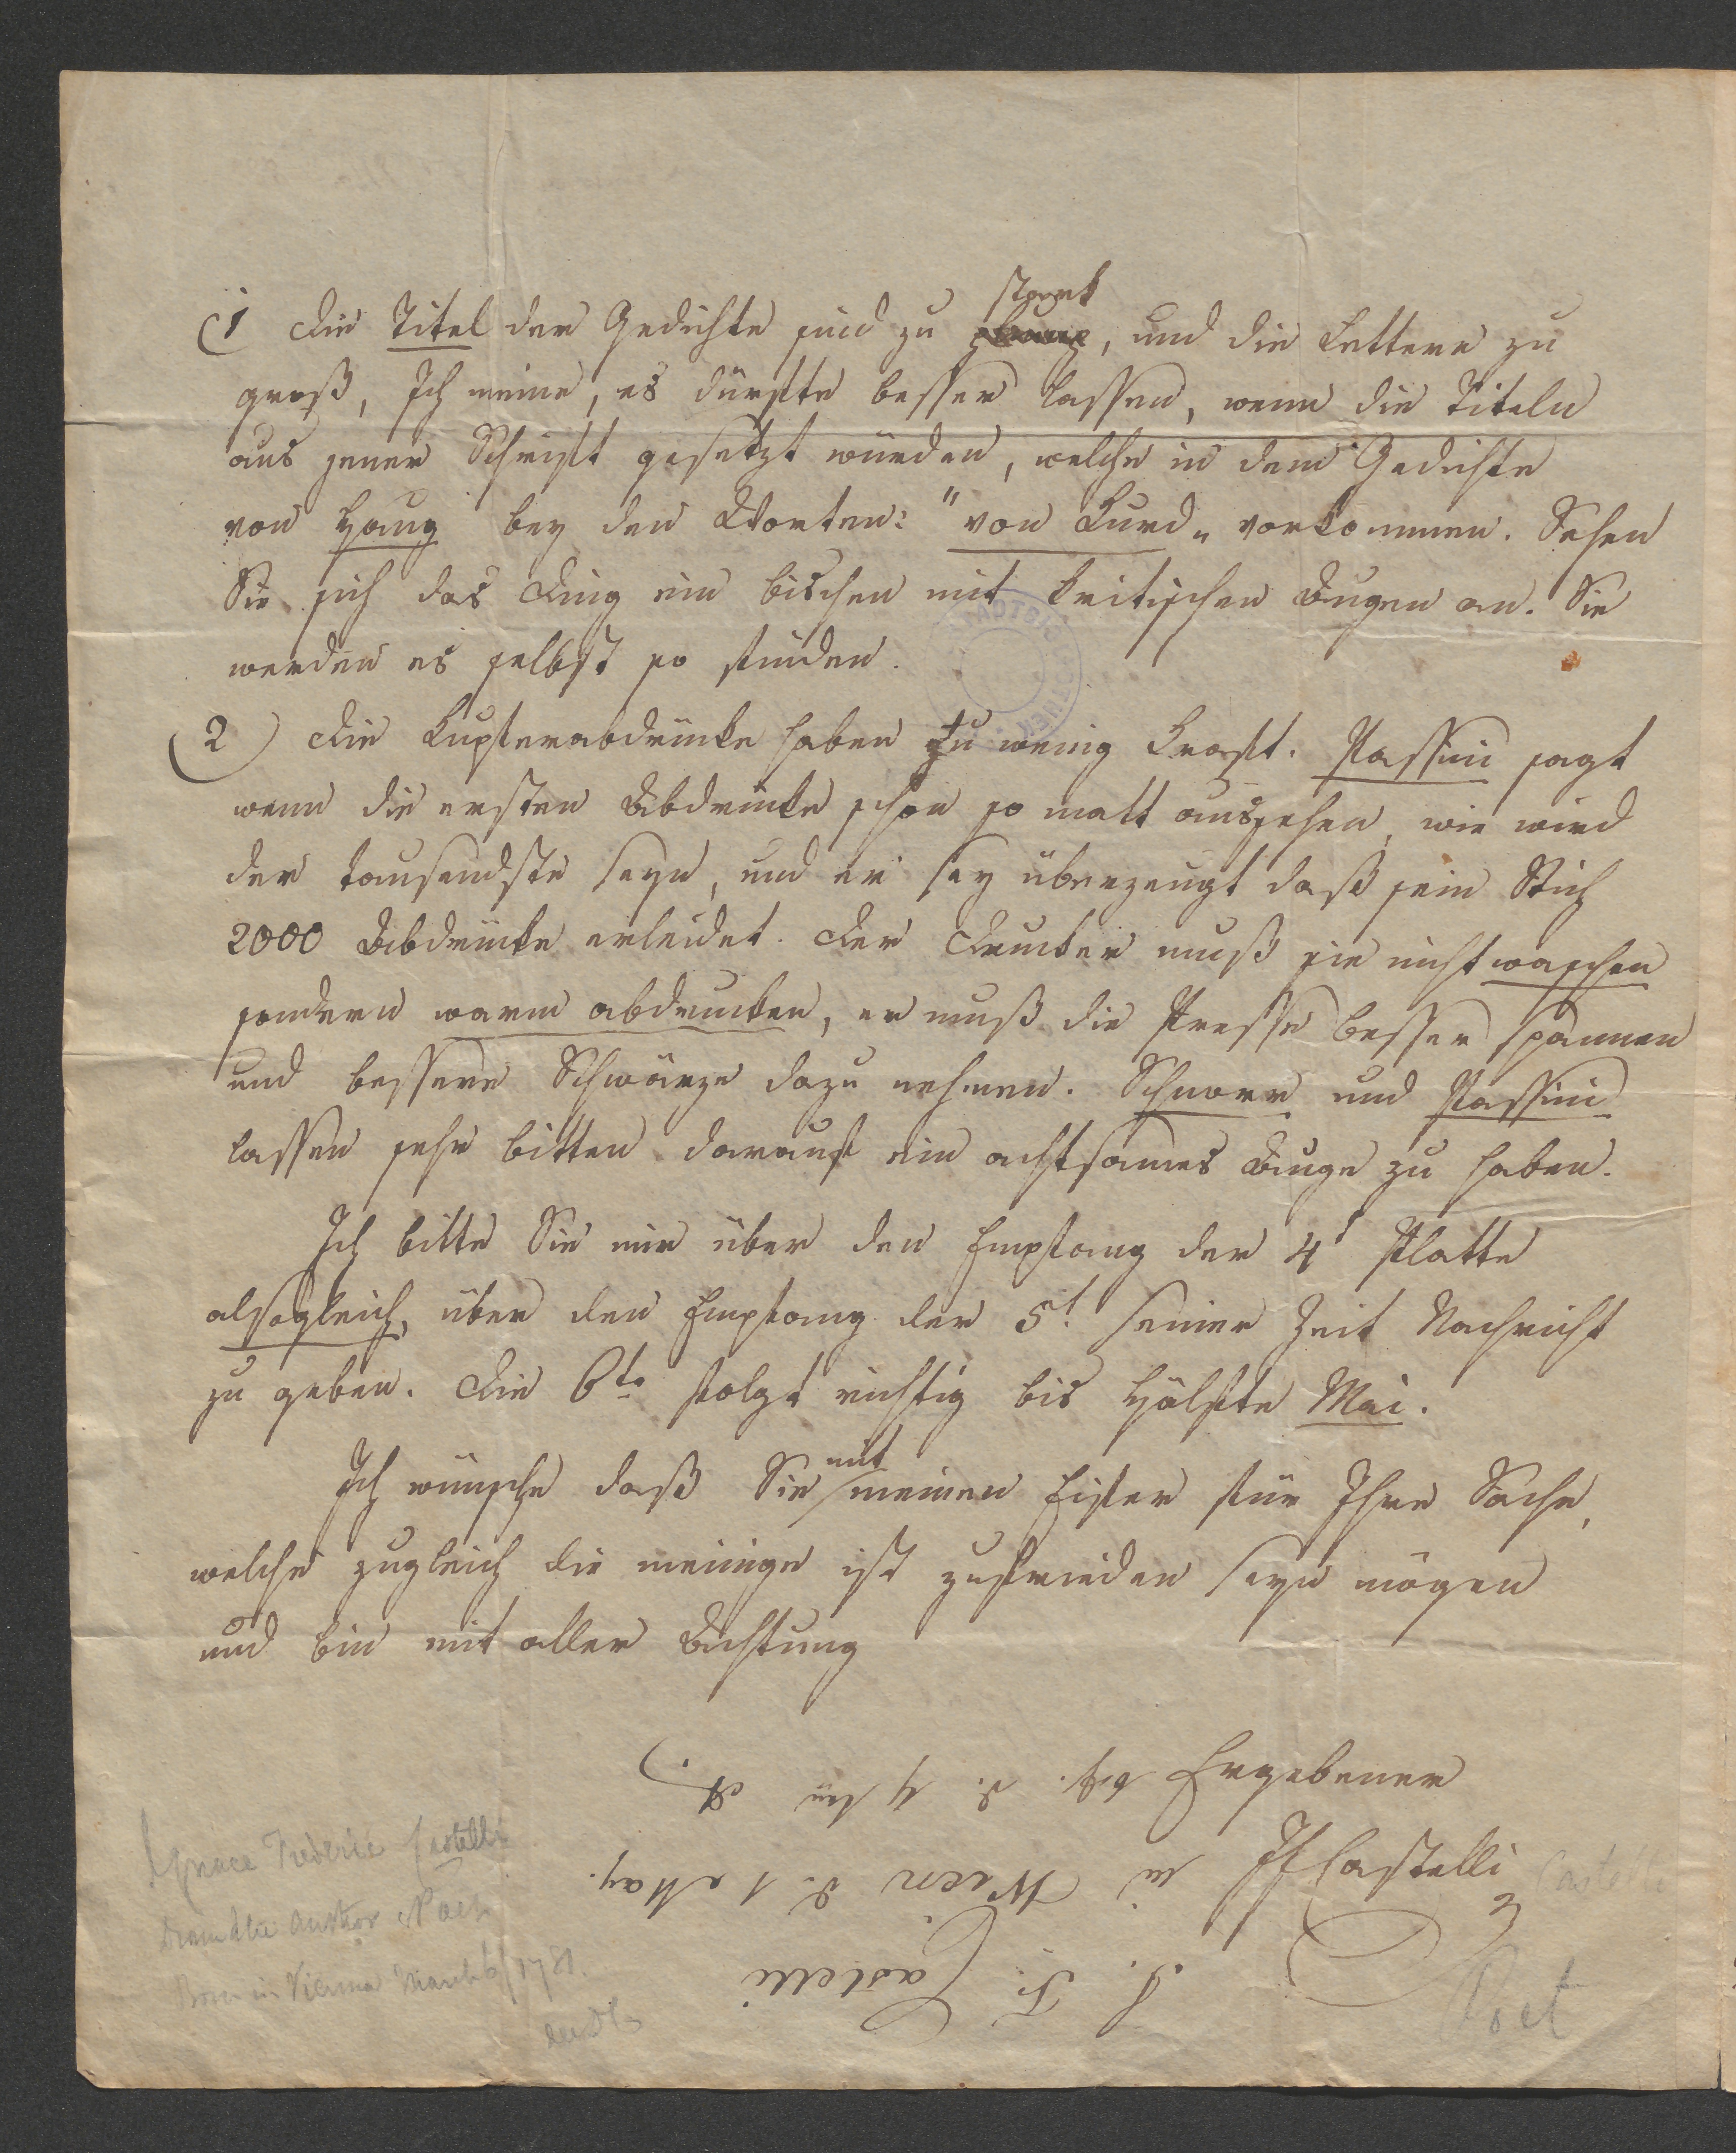 1) Die Titel der Gedichte sind zu stark, und die Lettern zu
groß, Ich meine, es dürfte besser lassen, wenn die Titeln
aus jener Schrift gesetzt würden, welche in dem Gedichte
von Haug bey den Worten: "von Kurd" vorkommen. Sehen
Sie sich das Ding ein bischen mit kritischen Augen an. Sie
werden es selbst so finden.
2) Die Kupferabdrücke haben zu wenig Kraft. Passini sagt
wenn die ersten Abdrücke schon so matt aussehen, wie wird
der tausendste seyn, und er sey überzeugt daß sein Stich
2000 Abdrücke erleidet. Der Drucker muß sie nicht waschen
sondern warm abdrucken, er muß die Presse besser spannen
und bessere Schwärze dazu nehmen. Schnorr und Passini
lassen sehr bitten darauf ein achtsames Auge zu haben.
Ich bitte Sie mir über den Empfang der 4t Platte
alsogleich, über den Empfang der 5t seiner Zeit Nachricht
zu geben. Die 6te folgt richtig bis Hälfte Mai.
Ich wünsche daß Sie mit meinem Eifer für Ihre Sache,
welche zugleich die meinige ist zufrieden seyn mögen
und bin mit aller Achtung
Ergebener
JFCastelli
Castelli
Poet
J. F. Castelli
in Wien d. 1 May.
Ignace Frederic Castelli
Dramatic Author & Poet
Born in Vienna March 6/1781.